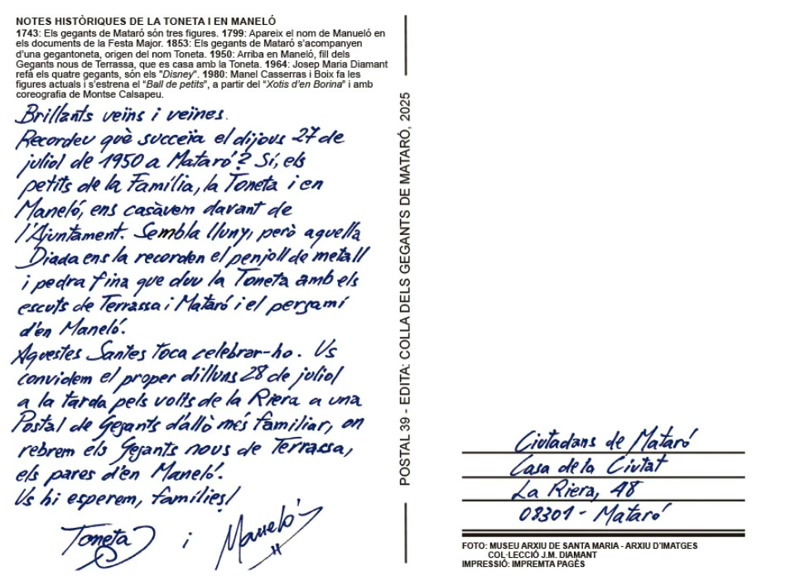 NOTES HISTÒRIQUES DE LA TONETA I EN MANELÓ
1743: Els gegants de Mataró són tres figures. 1799: Apareix el nom de Manueló en
els documents de la Festa Major. 1853: Els gegants de Mataró s'acompanyen
d'una gegantoneta, origen del nom Toneta. 1950: Arriba en Maneló, fill dels
Gegants nous de Terrassa, que es casa amb la Toneta. 1964: Josep Maria Diamant
refà els quatre gegants, són els "Disney". 1980: Manel Casserras i Boix fa les
figures actuals i s'estrena el "Ball de petits", a partir del "Xotis d'en Borina" i amb
coreografia de Montse Calsapeu.
Brillants veïns i veïnes.
Recordeu què succeïa el dijous 27 de
juliol de 1950 a Mataró? Sí, els
petits de la Família, la Toneta i en
Maneló, ens casàvem davant de
l'Ajuntament. Sembla lluny, però aquella
Diada ens la recorden el penjoll de metall
i pedra fina que duu la Toneta amb els
escuts de Terrassa i Mataró i el pergamí
d'en Maneló.
Aquestes Santes toca celebrar-ho. Us
convidem el proper dilluns 28 de juliol
a la tarda pels volts de la Riera a una
Postal de Gegants d'allò més familiar, on
rebrem els Gegants nous de Terrassa,
els pares d'en Maneló.
Us hi esperem, famílies!
Toneta i Maneló
POSTAL 39 - EDITA: COLLA DELS GEGANTS DE MATARÓ, 2025
Ciutadans de Mataró
Casa de la Ciutat
La Riera, 48
08301 - Mataró
FOTO: MUSEU ARXIU DE SANTA MARIA - ARXIU D'IMATGES
COL·LECCIÓ J.M. DIAMANT
IMPRESSIÓ: IMPREMTA PAGÈS